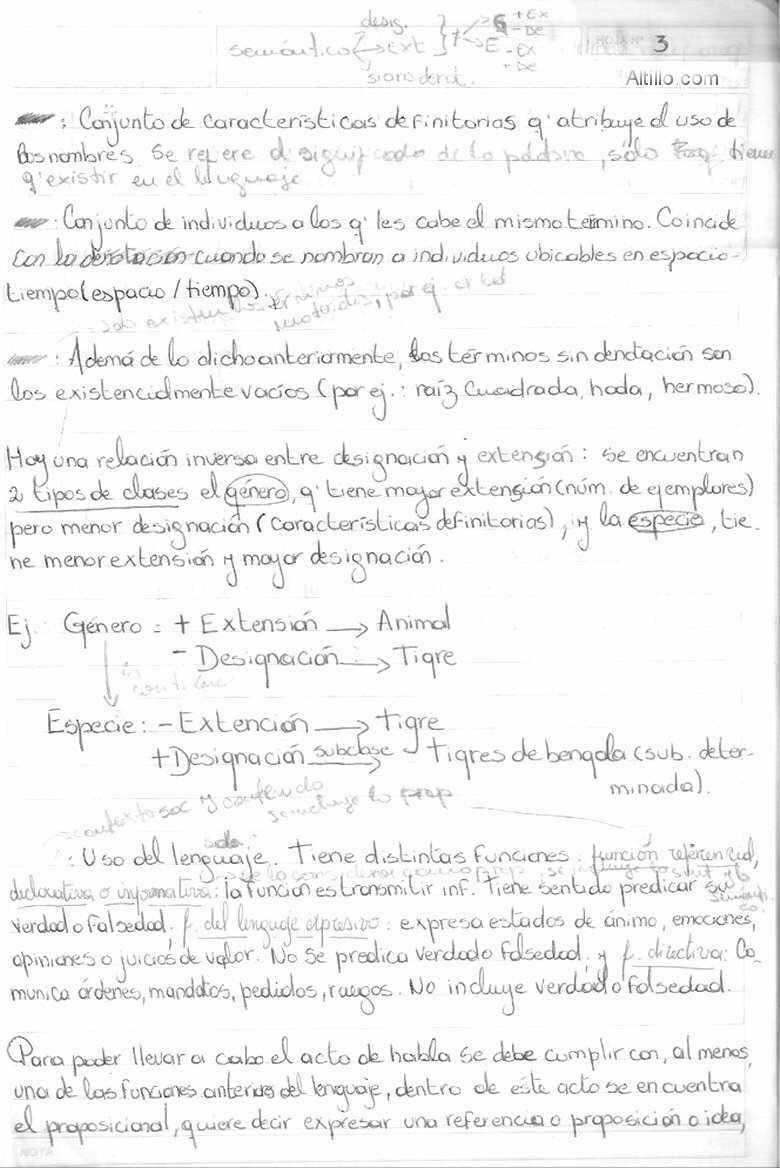 desig. + Ex
semántico → Ext } + → G - De
→ E - Ex
+ De
HOJA Nº 3
Altillo.com
: Conjunto de características definitorias q' atribuye el uso de
los nombres. Se refiere al significado de la palabra, sólo tiene
q' existir en el lenguaje
: Conjunto de individuos a los q' les cabe el mismo término. Coincide
con la denotación cuando se nombran a individuos ubicables en espacio-
tiempo (espacio / tiempo).
: Ademá de lo dicho anteriormente, los términos sin denotación son
los existencialmente vacíos (por ej.: raíz cuadrada, hada, hermoso).
Hay una relación inversa entre designación y extensión: se encuentran
2 tipos de clases el género, q' tiene mayor extensión (núm. de ejemplares)
pero menor designación (características definitorias), y la especie, tie-
ne menor extensión y mayor designación.
Ej. Género: + Extensión → Animal
- Designación: → Tigre
Especie: - Extención → tigre
+ Designación subclase → tigres de bengala (sub. deter-
minada).
: Uso del lenguaje. Tiene distintas funciones: función referencial,
declarativa o informativa: la función es transmitir inf. Tiene sentido predicar su
verdad o falsedad. f. del lenguaje expresivo: expresa estados de ánimo, emociones,
opiniones o juicios de valor. No se predica verdad o falsedad. y f. directiva: Co-
munica órdenes, mandatos, pedidos, ruegos. No incluye verdad o falsedad.
Para poder llevar a cabo el acto de habla se debe cumplir con, al menos,
una de las funciones anterios del lenguaje, dentro de este acto se encuentra
el proposicional, quiere decir expresar una referencia o proposición o idea,
NOTA